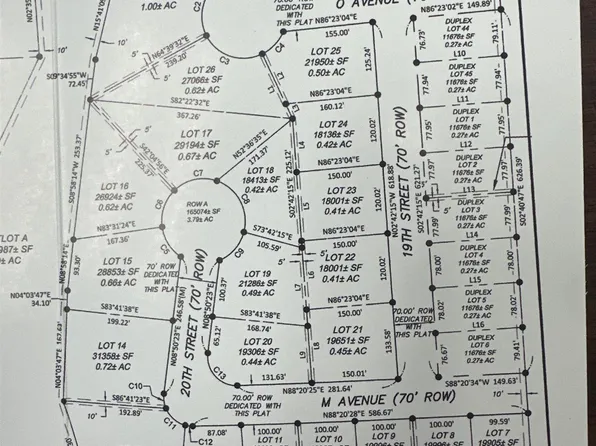 1.00± AC
C2
70.00' ROW
DEDICATED
WITH
THIS PLAT
O AVENUE (70'
N86°23'04"E
155.00'
N86°23'02"E 149.89'
DUPLEX
LOT 44
11676± SF
0.27± AC
76.73'
79.11'
N02°35'
N15°41'0
10'
N64°39'32"E
239.20'
5'
C3
C4
LOT 25
21950± SF
0.50± AC
125.24'
L10
DUPLEX
LOT 45
11676± SF
0.27± AC
77.94'
77.94'
S09°34'55"W
72.45'
LOT 26
27066± SF
0.62± AC
L1
L2
L3
N86°23'04"E
160.12'
S82°22'32"E
367.26'
L11
DUPLEX
LOT 1
11676± SF
0.27± AC
77.95'
77.95'
LOT 17
29194± SF
0.67± AC
N52°36'35"E
171.37'
225.12'
L4
LOT 24
18136± SF
0.42± AC
120.02'
L12
DUPLEX
LOT 2
11676± SF
0.27± AC
77.97'
77.97'
S08°58'14"W 253.37'
225.37'
5'
LOT 18
18413± SF
0.42± AC
N86°23'04"E
150.00'
C7
LOT 16
26924± SF
0.62± AC
C6
ROW A
165074± SF
3.79± AC
C8
S02°42'15"E
L5
LOT 23
18001± SF
0.41± AC
120.02'
N02°42'15"W 618.88'
19TH STREET (70' ROW)
S02°42'15"E 621.27'
L13
DUPLEX
LOT 3
11676± SF
0.27± AC
77.99'
77.99'
S02°40'47"E 626.39'
N83°31'24"E
167.36'
C5
S73°42'15"E
105.59'
N86°23'04"E
150.00'
L14
DUPLEX
LOT 4
11676± SF
0.27± AC
78.00'
78.00'
TLOT A
N08°58'14"E
93.30'
LOT 15
28853± SF
0.66± AC
70' ROW
DEDICATED
WITH
THIS PLAT
C9
LOT 19
21286± SF
0.49± AC
100.37'
5'
L6
L7
LOT 22
18001± SF
0.41± AC
120.02'
L15
DUPLEX
LOT 5
11676± SF
0.27± AC
78.02'
78.02'
N04°03'47"E
34.10'
S83°41'38"E
199.22'
N08°50'23"E 246.58'(M)
20TH STREET (70' ROW)
N08°50'23"E
S83°41'38"E
168.74'
N86°23'04"E
150.00'
70.00' ROW
DEDICATED
WITH
THIS PLAT
L16
DUPLEX
LOT 6
11676± SF
0.27± AC
76.67'
79.41'
N04°03'47"E 167.63'
LOT 14
31358± SF
0.72± AC
65.12'
LOT 20
19306± SF
0.44± AC
L8
L9
LOT 21
19651± SF
0.45± AC
133.58'
S86°41'23"E
192.89'
10'
C10
C11
C12
C13
131.63'
N88°20'25"E 281.64'
150.01'
S88°20'34"W 149.63'
70.00' ROW
DEDICATED WITH
THIS PLAT
M AVENUE (70' ROW)
N88°20'28"E 586.67'
10'
87.08'
100.00'
100.00'
100.00'
100.00'
99.59'
LOT 11
LOT 10
LOT 9
LOT 8
LOT 7
19905± SF